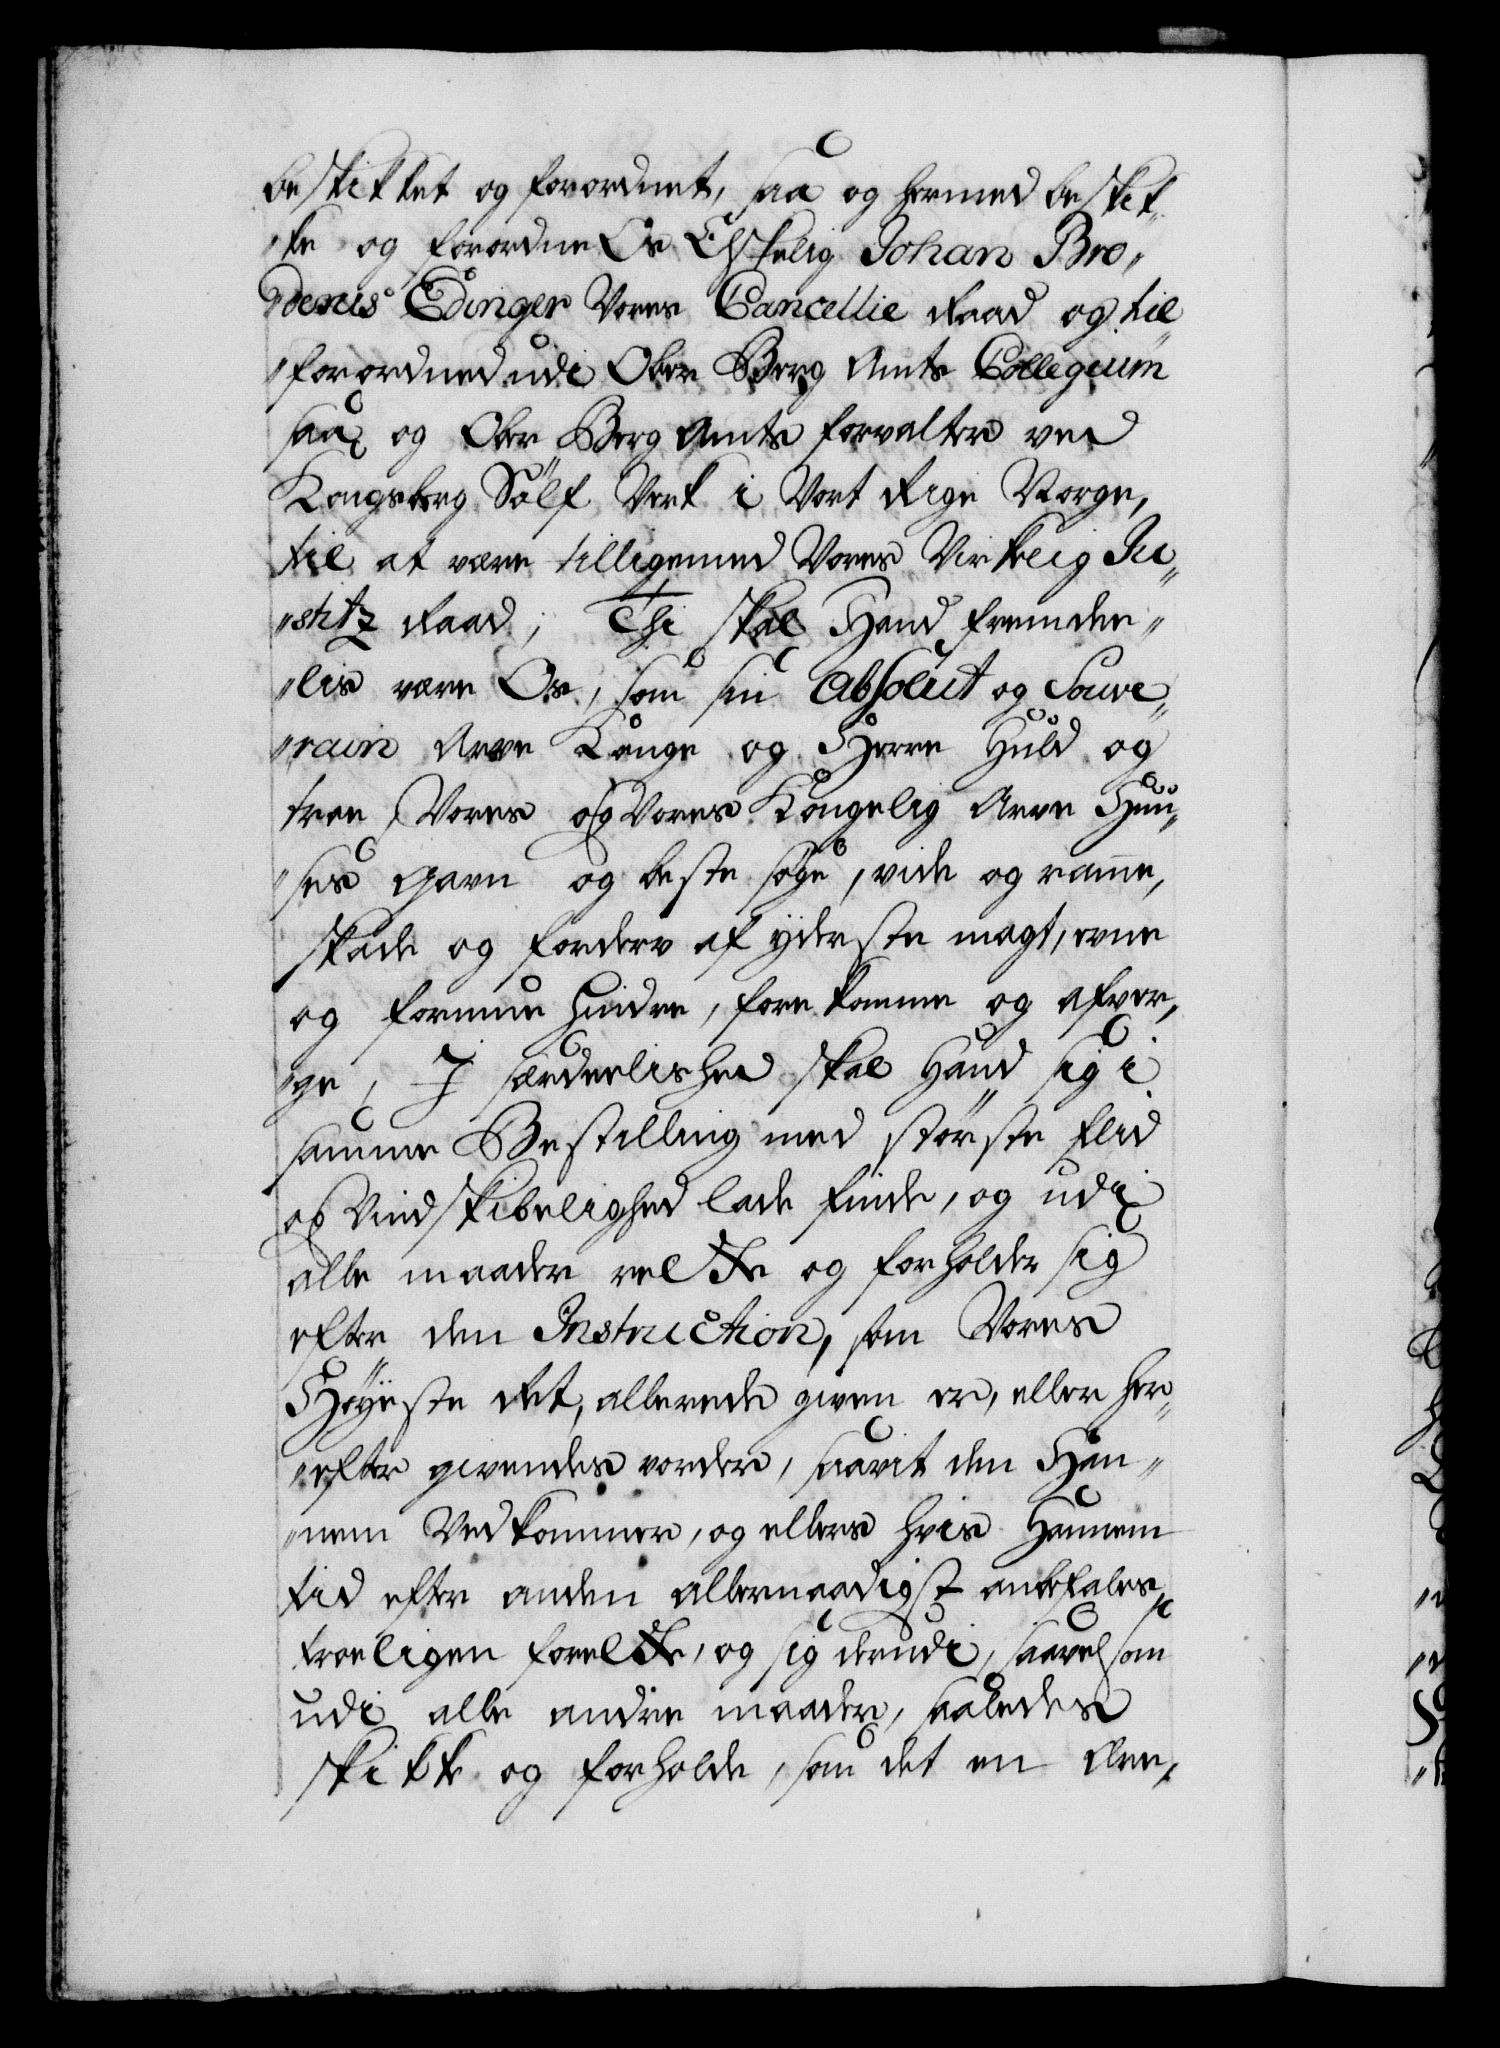 beskikket og forordnet, saa og hermed beskik„
„ke og forordne Os Elskelig Johan Bro„
„derus Edinger Vores Cancellie Raad og til
„forordned udi Ober Berg Amts Collegium
saa og Ober Berg Amts forvalter ved
Kongsberg Sölf Verk i Vort Rige Norge,
til at være tilligemed Vores Virkelig Ju„
„stitz Raad; Thi skal Hand fremdee„
„lis være Os, som sin Absolut og Souve„
„rain Arve Konge og Herre Huld og
troe, Vores og Vores Kongelig Arve Huu„
„ses gavn og beste søge, vide og rame,
skade og forderv af yderste magt, evne
og formue hindre, forekomme og afver„
„ge, J særdeelished skal Hand sig i
samme Bestilling med störste flid
og Vindskibelighed lade finde, og udi
alle maader rette og forholder sig
efter den Instruction, som Vores
Höyeste Ret, allerede given er, eller her„
„efter givendes vorder, saavit den Han„
„nem Vedkommer, og ellers hvis Hannem
tid efter anden allernaadigst anbefales,
troeligen forrette, og sig derudi, saavelsom
udi alle andre maader, saaledes
skikke og forholde, som det en Ære„